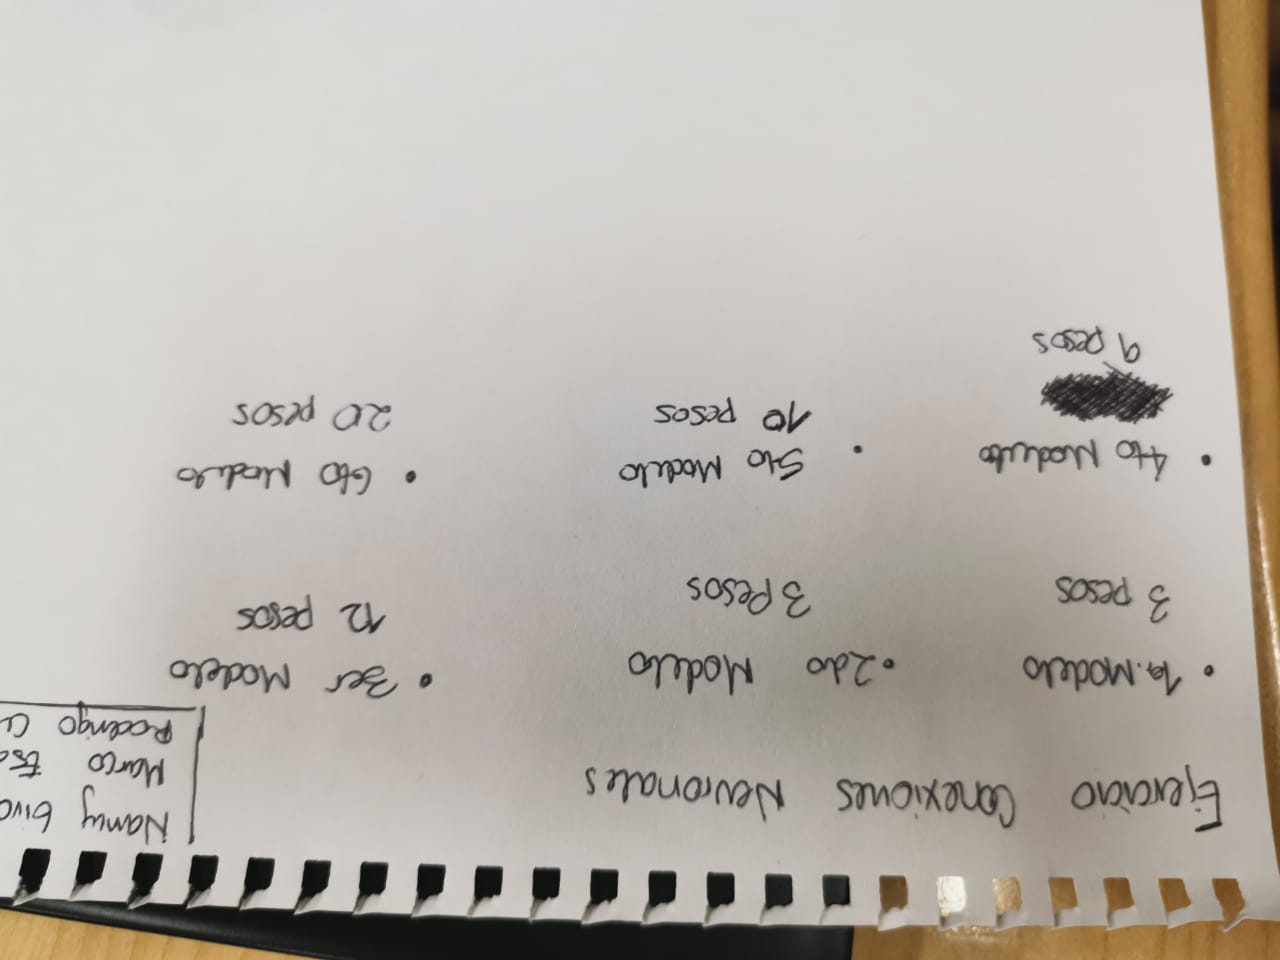 Ejercicio Conexiones Neuronales
Namy
Marco
Rodrigo
• 1er. Modelo
3 pesos
• 2do Modelo
3 Pesos
• 3er Modelo
12 pesos
• 4to Modelo
9 pesos
• 5to Modelo
10 pesos
• 6to Modelo
20 pesos